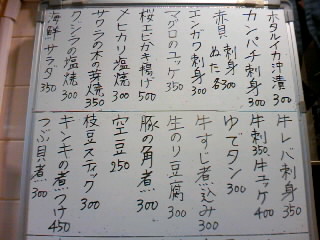 ホタルイカ沖漬 300
カンパチ刺身 300
赤貝 刺身 ぬた 各300
エンガワ刺身 300
マグロのユッケ 350
桜エビかき揚げ 500
メヒカリ塩焼 300
サワラの木の芽焼 350
クジラの塩焼 300
海鮮サラダ 350
牛レバ刺身 350
牛刺 350 牛ユッケ 400
ゆでタン 300
牛すじ煮込み 300
生のり豆腐 300
豚の角煮 300
空豆 250
枝豆スティック 300
キンキの煮つけ 450
つぶ貝煮 300